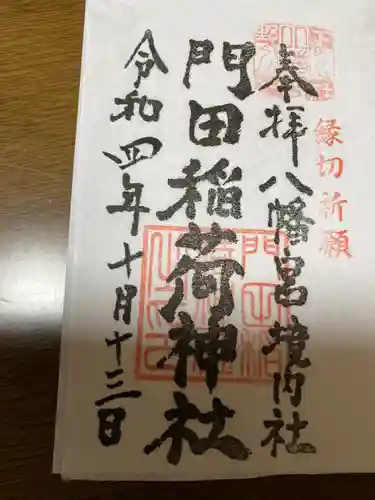 縁切祈願
奉拝 八幡宮境内社
門田稲荷神社
令和四年十月十三日